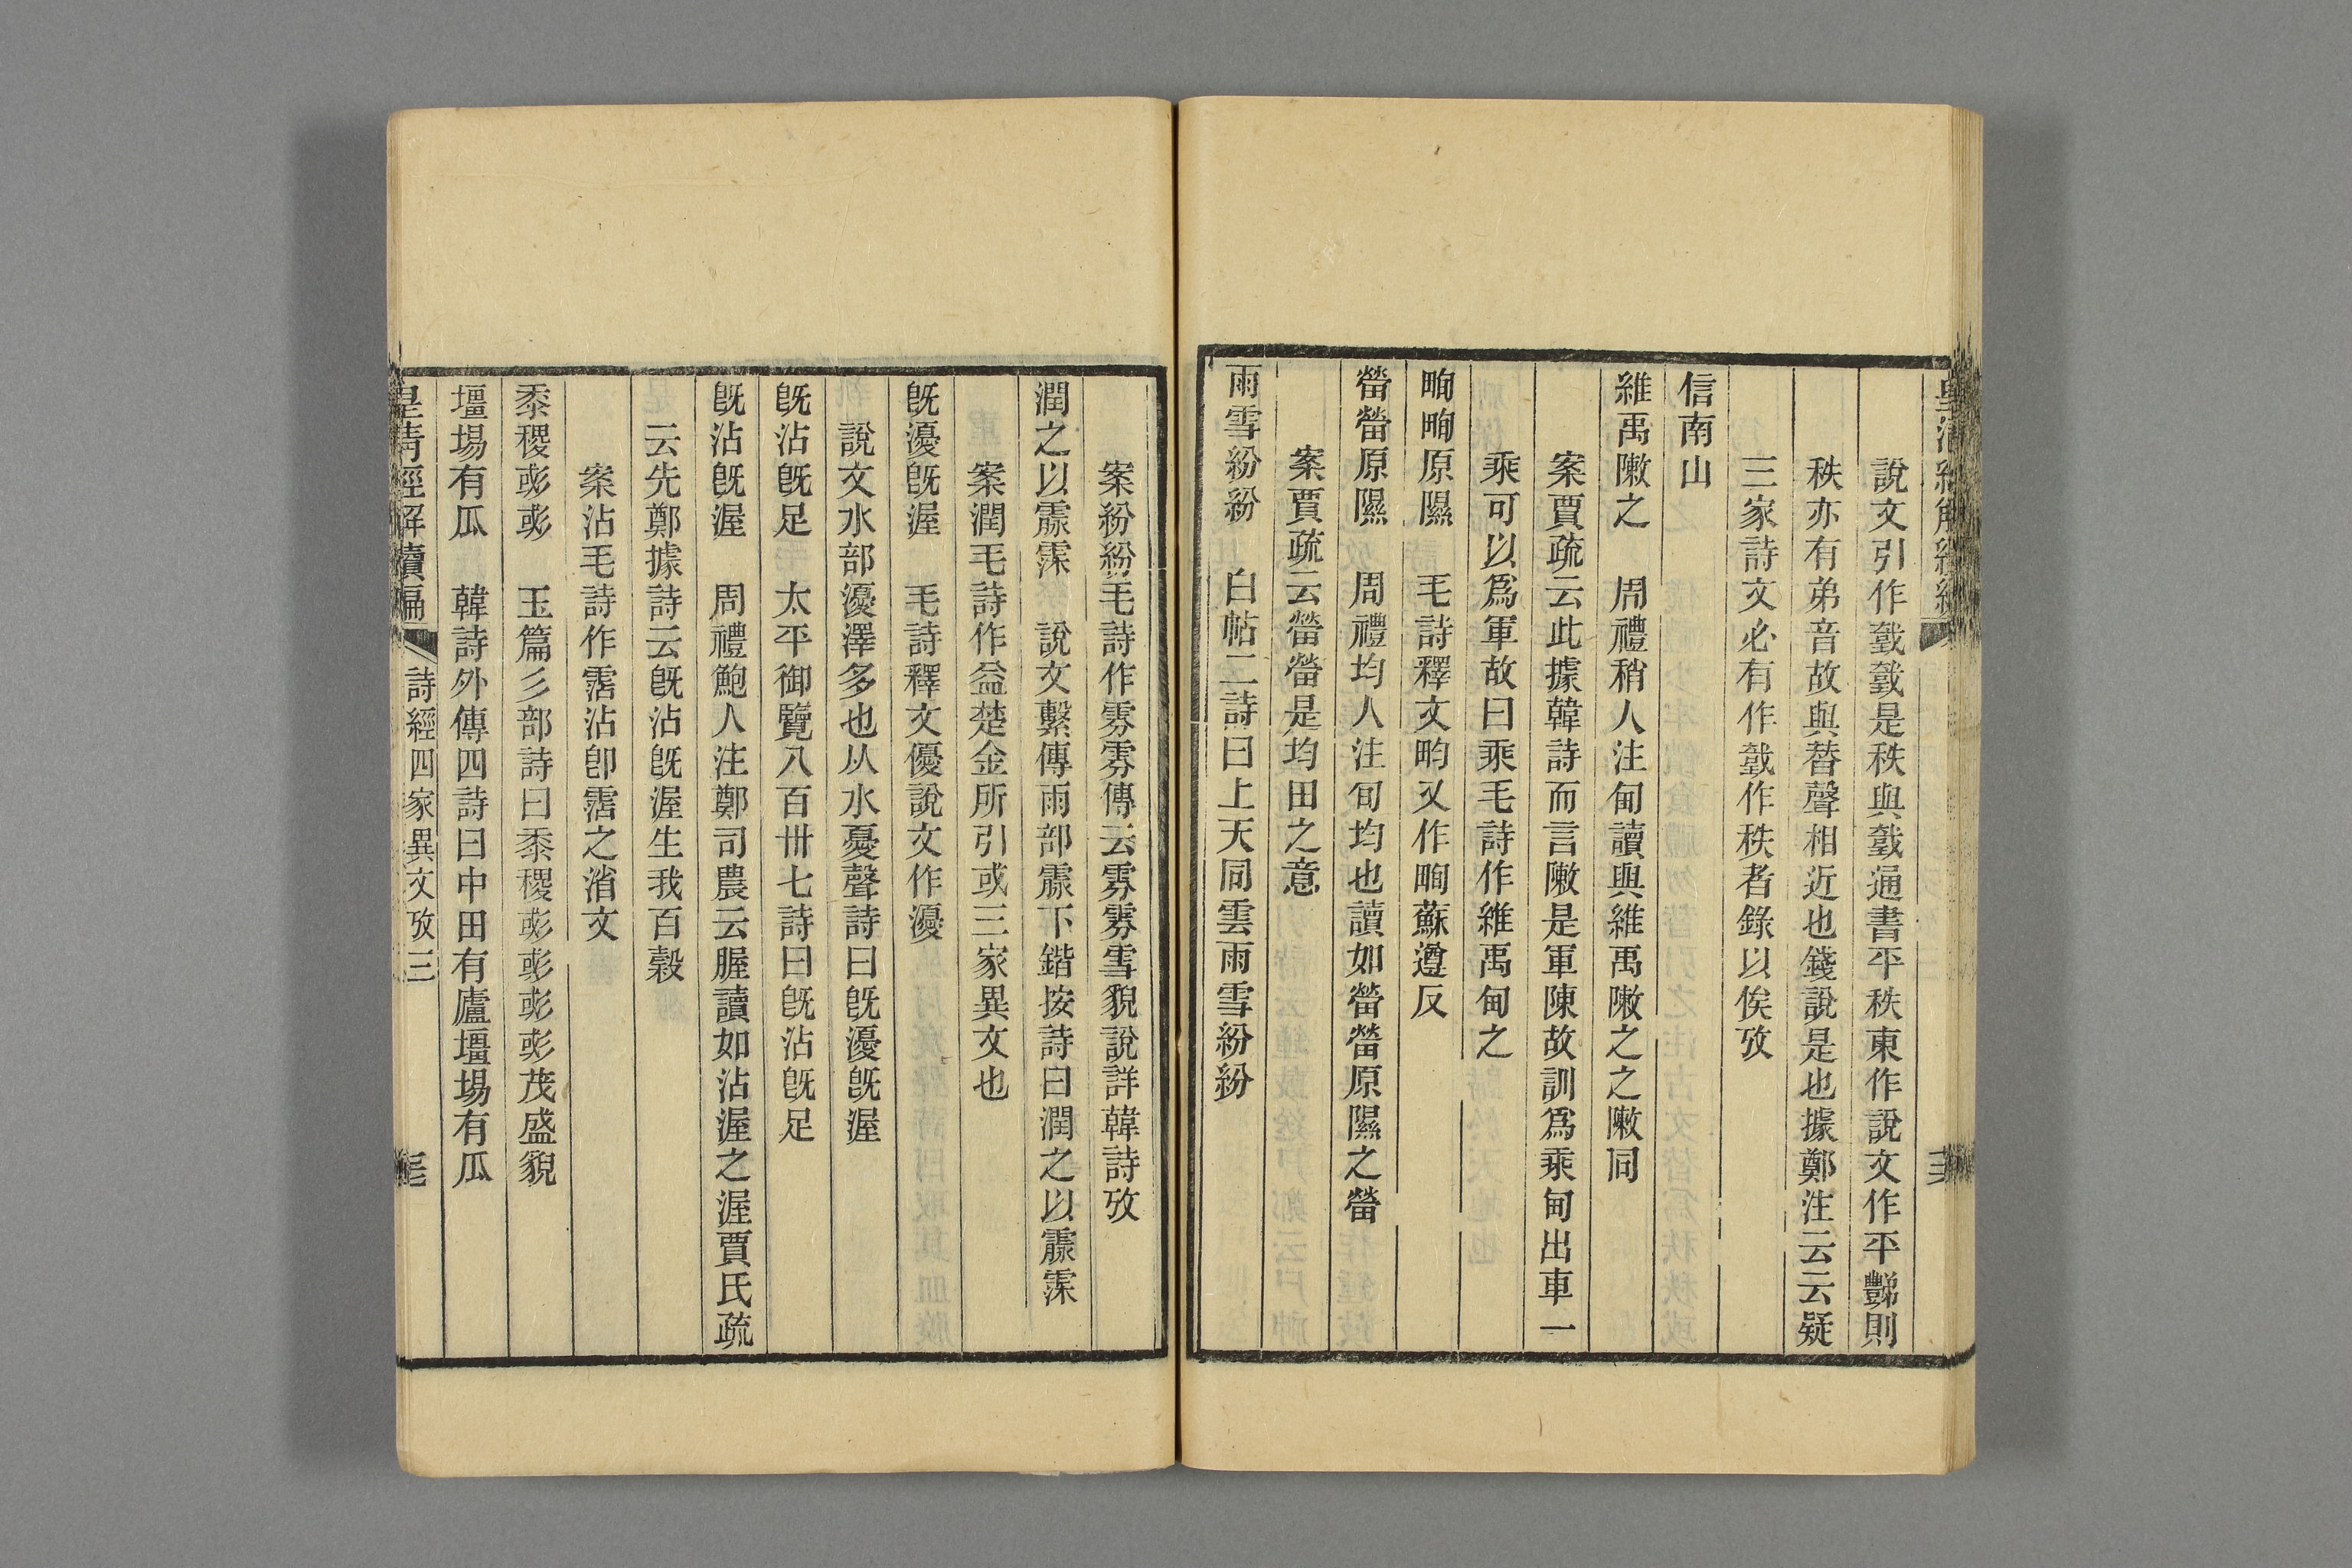 說文引作㘜㘜是秩與㘜通書平秩東作說文作平豑則
秩亦有弟音故與替聲相近也錢說是也據鄭注云云疑
三家詩文必有作㘜作秩者錄以俟攷
信南山
維禹敶之 周禮稍人注甸讀與維禹敶之之敶同
案賈疏云此據韓詩而言敶是軍陳故訓爲乘甸出車一
乘可以爲軍故曰乘毛詩作維禹甸之
畇畇原隰 毛詩釋文畇又作㽦蘇遵反
䇦䇦原隰 周禮均人注旬均也讀如䇦䇦原隰之䇦
案賈疏云䇦䇦是均田之意
雨雪紛紛 白帖二詩曰上天同雲雨雪紛紛
案紛紛毛詩作雰雰傳云雰雰雪貌說詳韓詩攷
潤之以霡霂 說文繫傳雨部霡下鍇按詩曰潤之以霡霂
案潤毛詩作益楚金所引或三家異文也
旣瀀旣渥 毛詩釋文優說文作瀀
說文水部瀀澤多也从水憂聲詩曰旣瀀旣渥
旣沾旣足 太平御覽八百卅七詩曰旣沾旣足
旣沾旣渥 周禮鮑人注鄭司農云腛讀如沾渥之渥賈氏疏
云先鄭據詩云旣沾旣渥生我百穀
案沾毛詩作霑沾卽霑之消文
黍稷彧彧 玉篇彡部詩曰黍稷彧彧彧彧茂盛貌
壃場有瓜 韓詩外傳四詩曰中田有廬壃場有瓜
皇淸經解續編 詩經四家異文攷三